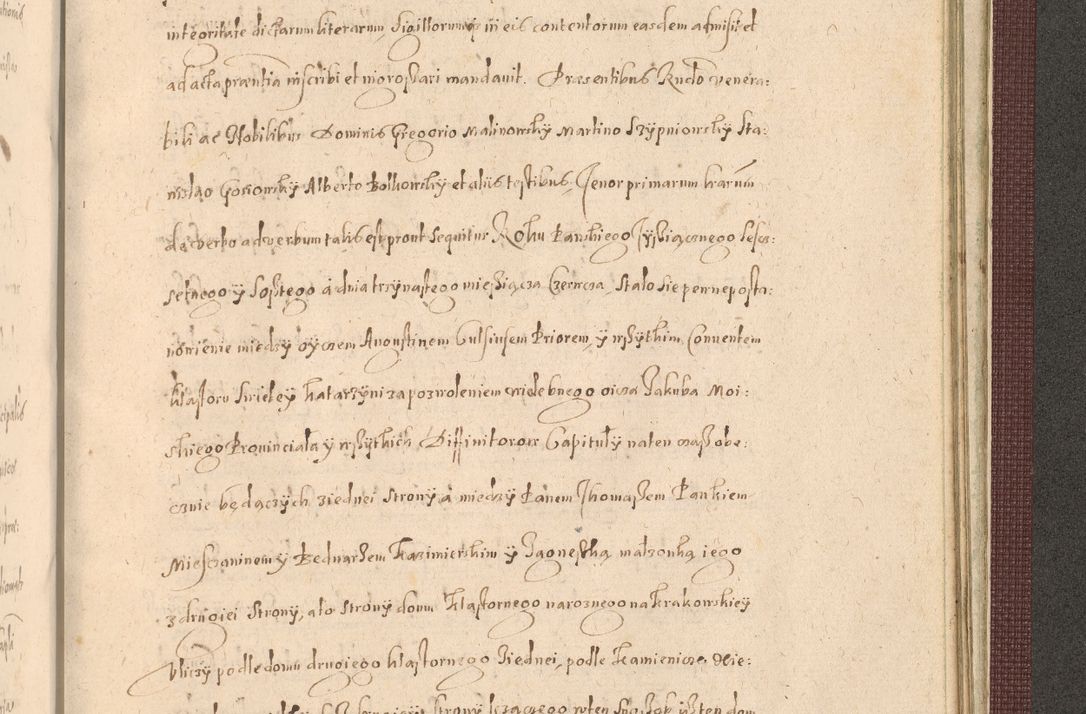 integritate dictarum literarum, Sigillorumq; in eis contentorum easdem admisit et
ad acta præntia inscribi et ingrossari mandavit. Præsentibus Rndo venera:
bili ac Nobilibus Dominis Gregorio Malinowskÿ Martino Szÿpniowskÿ Sta:
nislao Gosiowskÿ Alberto Bolkowskÿ et aliis testibus, Tenor primarum lrarum
de verbo ad verbum talis est prout sequitur Roku Panskiego Tysiącznego sesc:
setnego ÿ Soßtego a dnia trzÿnastego mießiącza Czerwcza, Stalo sie pewne posta:
nowienie miedzÿ oÿczem Augustinem Gulsiusem Priorem, ÿ wßÿtkim Conuentem
klaßtoru Swietey Katarzÿni za pozwoleniem wielebnego oicza Jakuba Moi:
skiego Prouinciala ÿ wßÿtkich Diffinitorow Capitulÿ na ten czaß obe:
cznie będączÿch z iednei stronÿ a miedzÿ Panem Thomaßem Pankiem
Mieszaninem ÿ Bednarßem Kazimierskim ÿ Jagneßką malzonką iego
z drugiei Stronÿ, a to stronÿ domu Klaßtornego narożnego na Krakowskieÿ
Uliczÿ podle domu drugiego klaßtornego Ziednei, podle Kamienicze Nie: